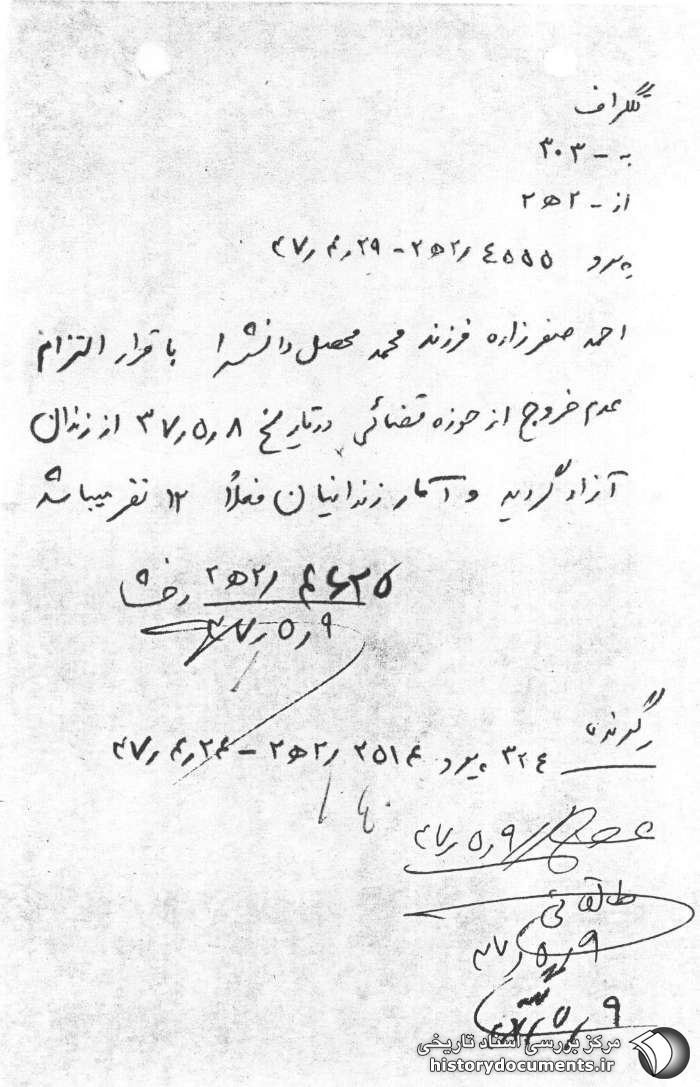 تلگراف
به - ۳۰۳
از - ۲ ه ۲
پیرو ۴۵۵۵ / ۲ ه ۲ - ۲۹ / ۴ / ۴۷
احمد صفرزاده فرزند محمد محصل دانشسرا با قرار التزام
عدم خروج از حوزه قضائی در تاریخ ۸ / ۵ / ۳۷ از زندان
آزاد گردید و آمار زندانیان فعلاً ۱۲ نفر میباشد
۴۶۲۵ / ۲ ه ۲
۹ / ۵ / ۴۷
گیرنده
۳۲۴ پیرو ۲۵۱۴ / ۲ ه ۲ - ۲۴ / ۴ / ۴۷
۹ / ۵ / ۴۷
طالقانی
۹ / ۵ / ۴۷
۹ / ۵ / ۴۷
مرکز بررسی اسناد تاریخی
historydocuments.ir